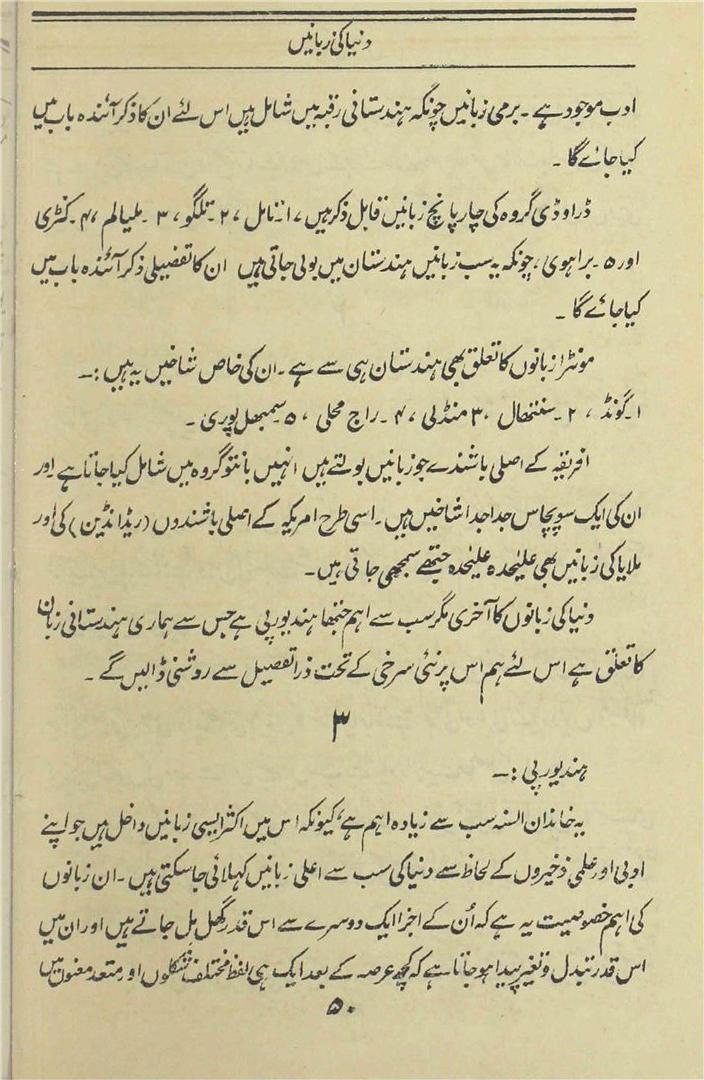 دنیا کی زبانیں
ادب موجود ہے ۔ برمی زبانیں چونکہ ہندستانی رقبہ میں شامل ہیں اس لئے ان کا ذکر آئندہ باب میں
کیا جائے گا ۔
ڈراوڈی گروہ کی چار پانچ زبانیں قابل ذکر ہیں ، ۱۔ ٹامل ، ۲۔ تلگو ، ۳۔ ملیالم ، ۴۔ کنٹری
اور ۵۔ براہوی ، چونکہ یہ سب زبانیں ہندستان میں بولی جاتی ہیں ان کا تفصیلی ذکر آئندہ باب میں
کیا جائے گا ۔
مونٹرا زبانوں کا تعلق بھی ہندستان ہی سے ہے ۔ ان کی خاص شاخیں یہ ہیں :۔
۱۔ گونڈ ، ۲۔ سنتھال ، ۳ منڈلی ، ۴۔ راج محلی ، ۵۔ سمبھل پوری ۔
افریقہ کے اصلی باشندے جو زبانیں بولتے ہیں انہیں بانتو گروہ میں شامل کیا جاتا ہے اور
ان کی ایک سو پچاس جدا جدا شاخیں ہیں ۔ اسی طرح امریکہ کے اصلی باشندوں (ریڈ انڈین) کی اور
ملایا کی زبانیں بھی علیٰحدہ علیٰحدہ جتھے سمجھی جاتی ہیں ۔
دنیا کی زبانوں کا آخری مگر سب سے اہم جتھا ہند یورپی ہے جس سے ہماری ہندستانی زبان
کا تعلق ہے اس لئے ہم اس پر نئی سرخی کے تحت ذرا تفصیل سے روشنی ڈالیں گے ۔
۳
ہند یورپی :۔
یہ خاندان السنہ سب سے زیادہ اہم ہے ، کیونکہ اس میں اکثر ایسی زبانیں داخل ہیں جو اپنے
ادبی اور علمی ذخیروں کے لحاظ سے دنیا کی سب سے اعلی زبانیں کہلائی جا سکتی ہیں ۔ ان زبانوں
کی اہم خصوصیت یہ ہے کہ اُن کے اجزا ایک دوسرے سے اس قدر گھل مل جاتے ہیں اور ان میں
اس قدر تبدل و تغیر پیدا ہو جاتا ہے کہ کچھ عرصہ کے بعد ایک ہی لفظ مختلف شکلوں اور متعدد معنوں میں
۵۰